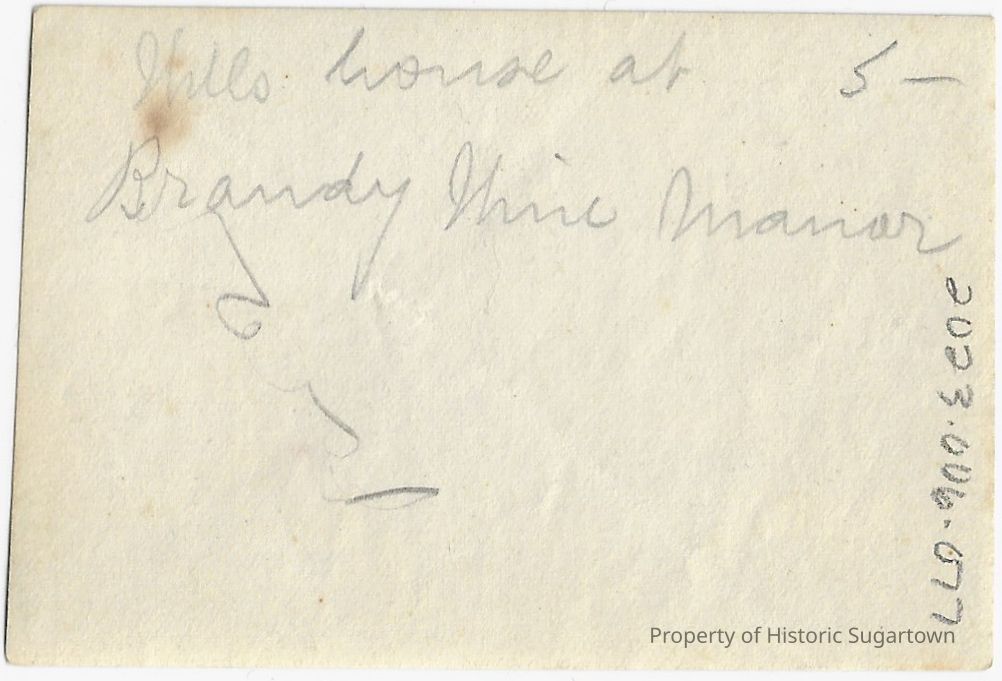 Wills house at 5 –
Brandy Wine Manor
2023.006.077
Property of Historic Sugartown